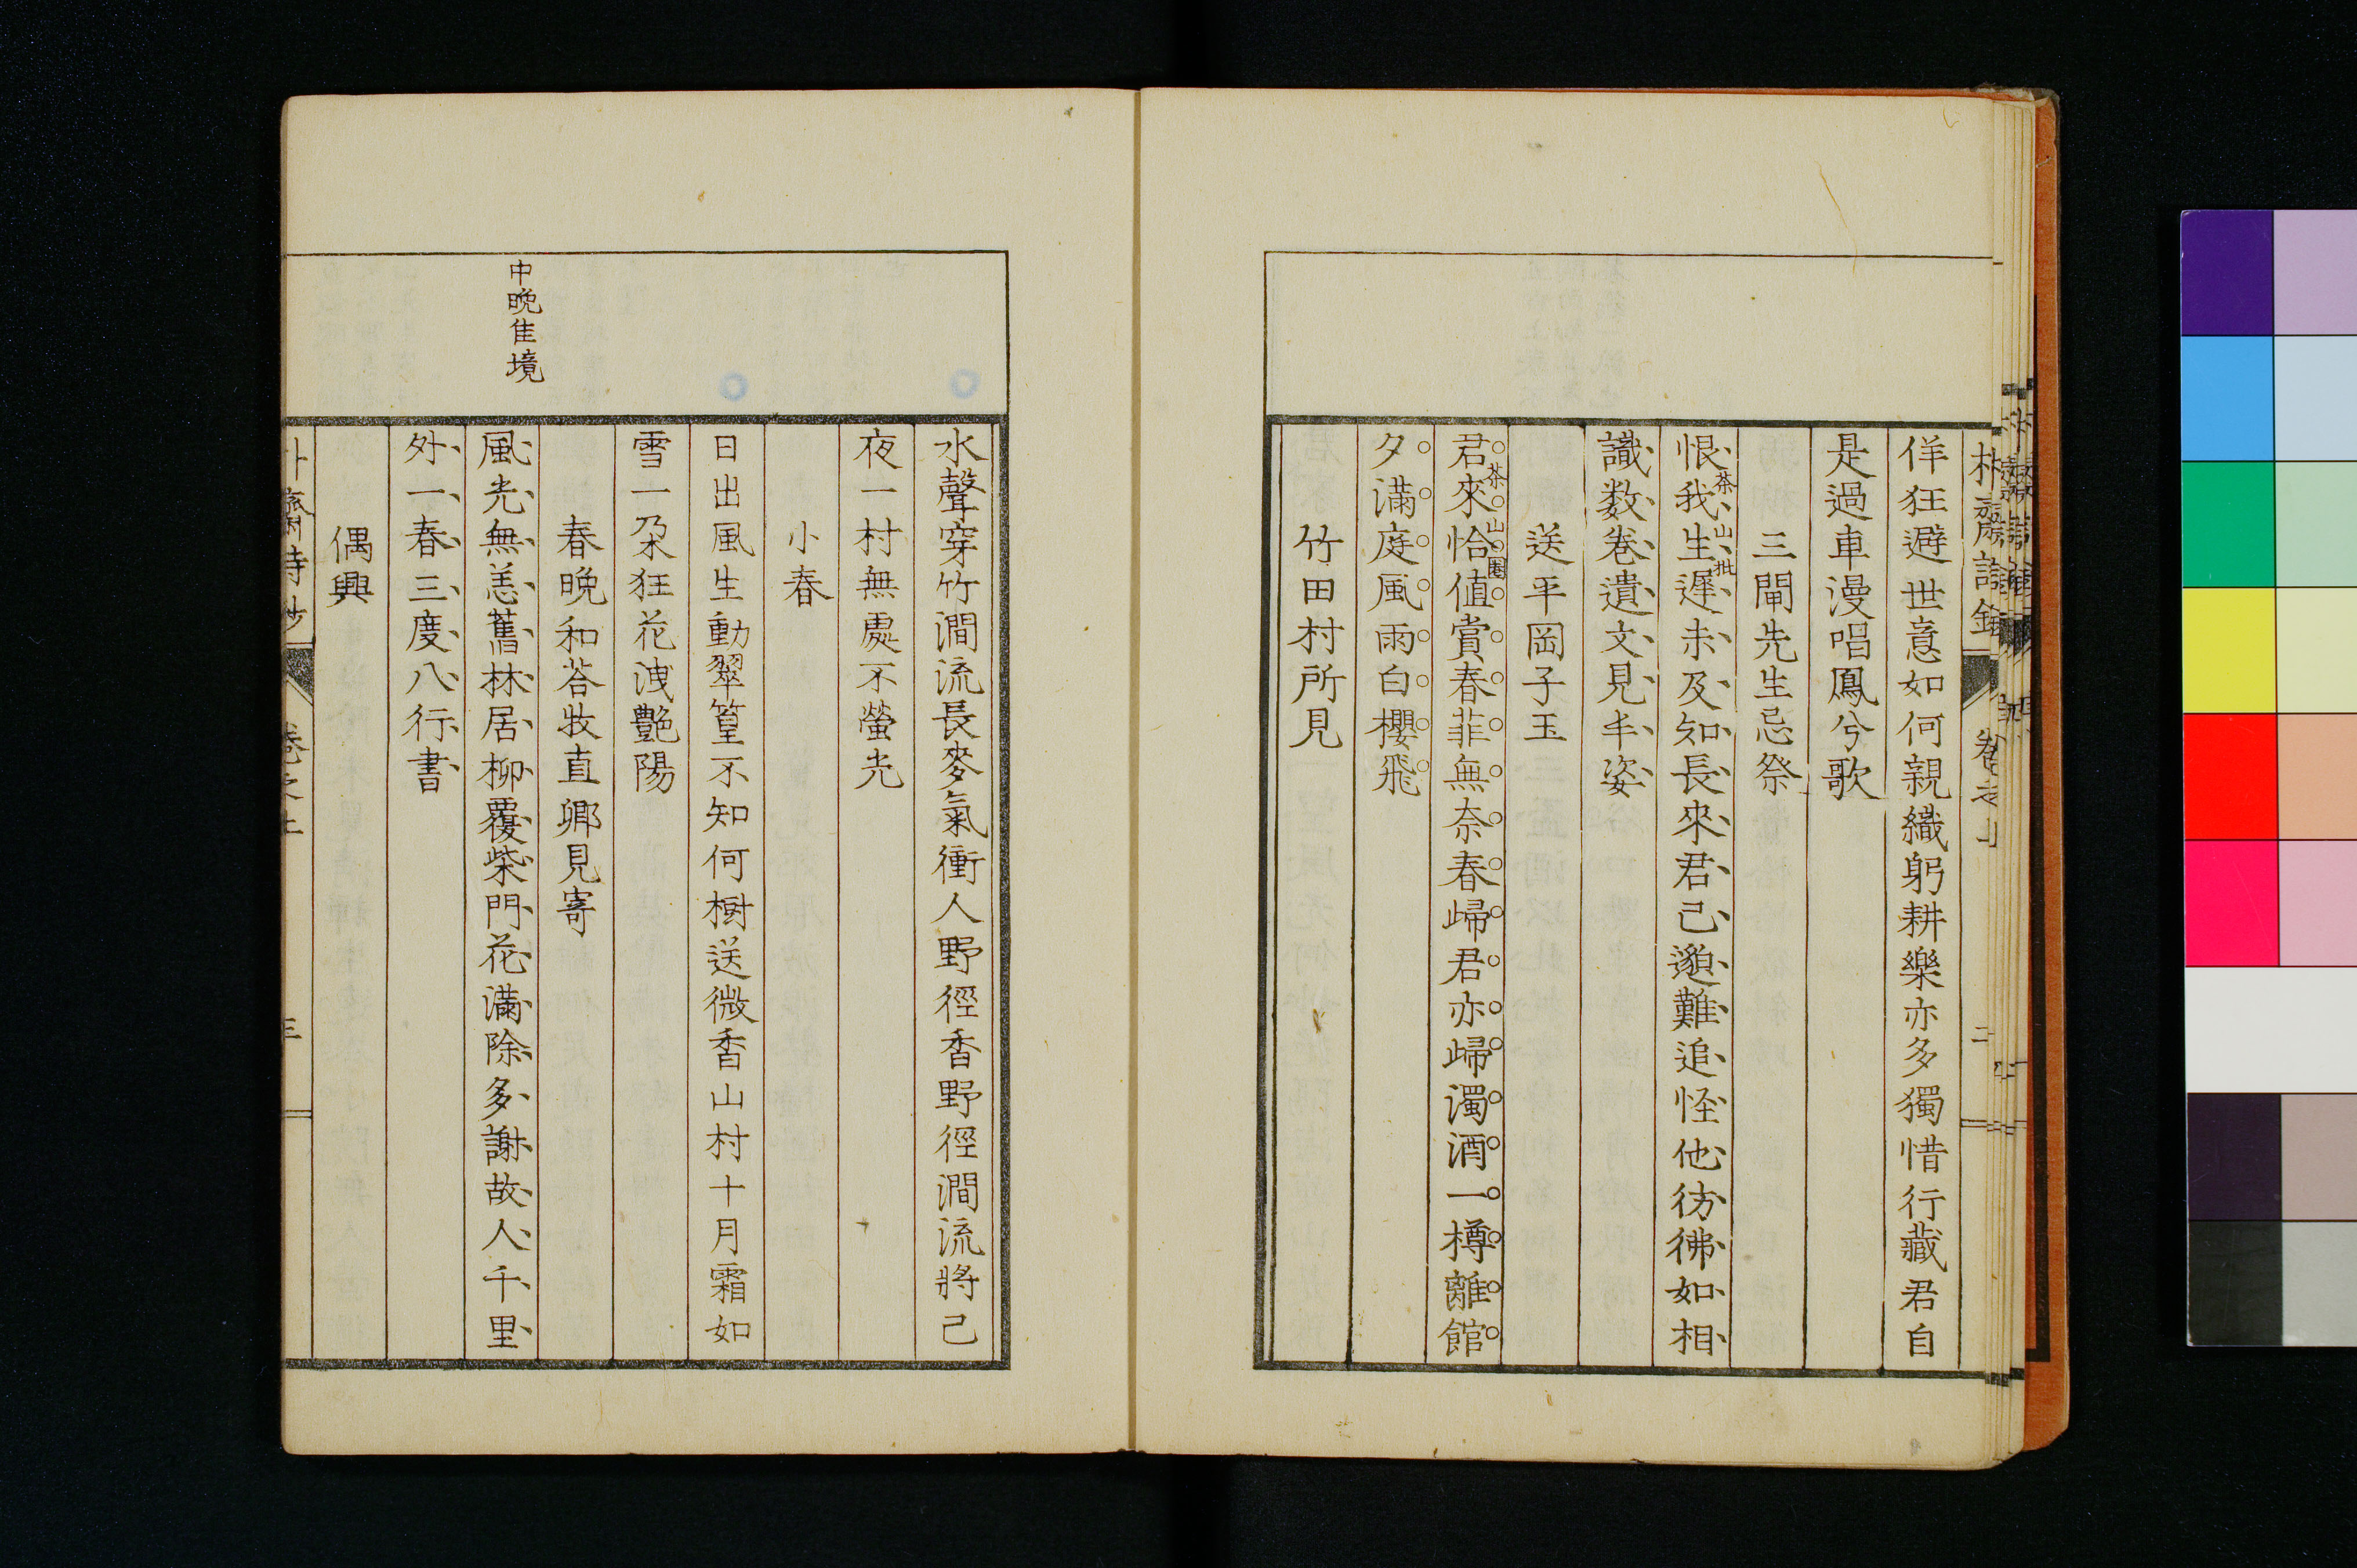 朴齋詩鈔 卷之上 二
佯狂避世意如何親織躬耕樂亦多獨惜行藏君自
是過車漫唱鳳兮歌
三閘先生忌祭
恨我生遲未及知長來君已邈難追怪他彷彿如相
茶山批
識数卷遺文見半姿
送平岡子玉
君來恰値賞春菲無奈春歸君亦歸濁酒一樽離館
茶山圈
夕滿庭風雨白櫻飛
竹田村所見
水聲穿竹澗流長麥氣衝人野徑香野徑澗流將已
夜一村無處不螢光
小春
日出風生動翠篁不知何樹送微香山村十月霜如
雪一朶狂花洩艷陽
春晚和荅牧直卿見寄
中晚佳境
風光無恙舊林居柳覆柴門花滿除多謝故人千里
外一春三度八行書
偶興
朴齋詩鈔 卷之上 三